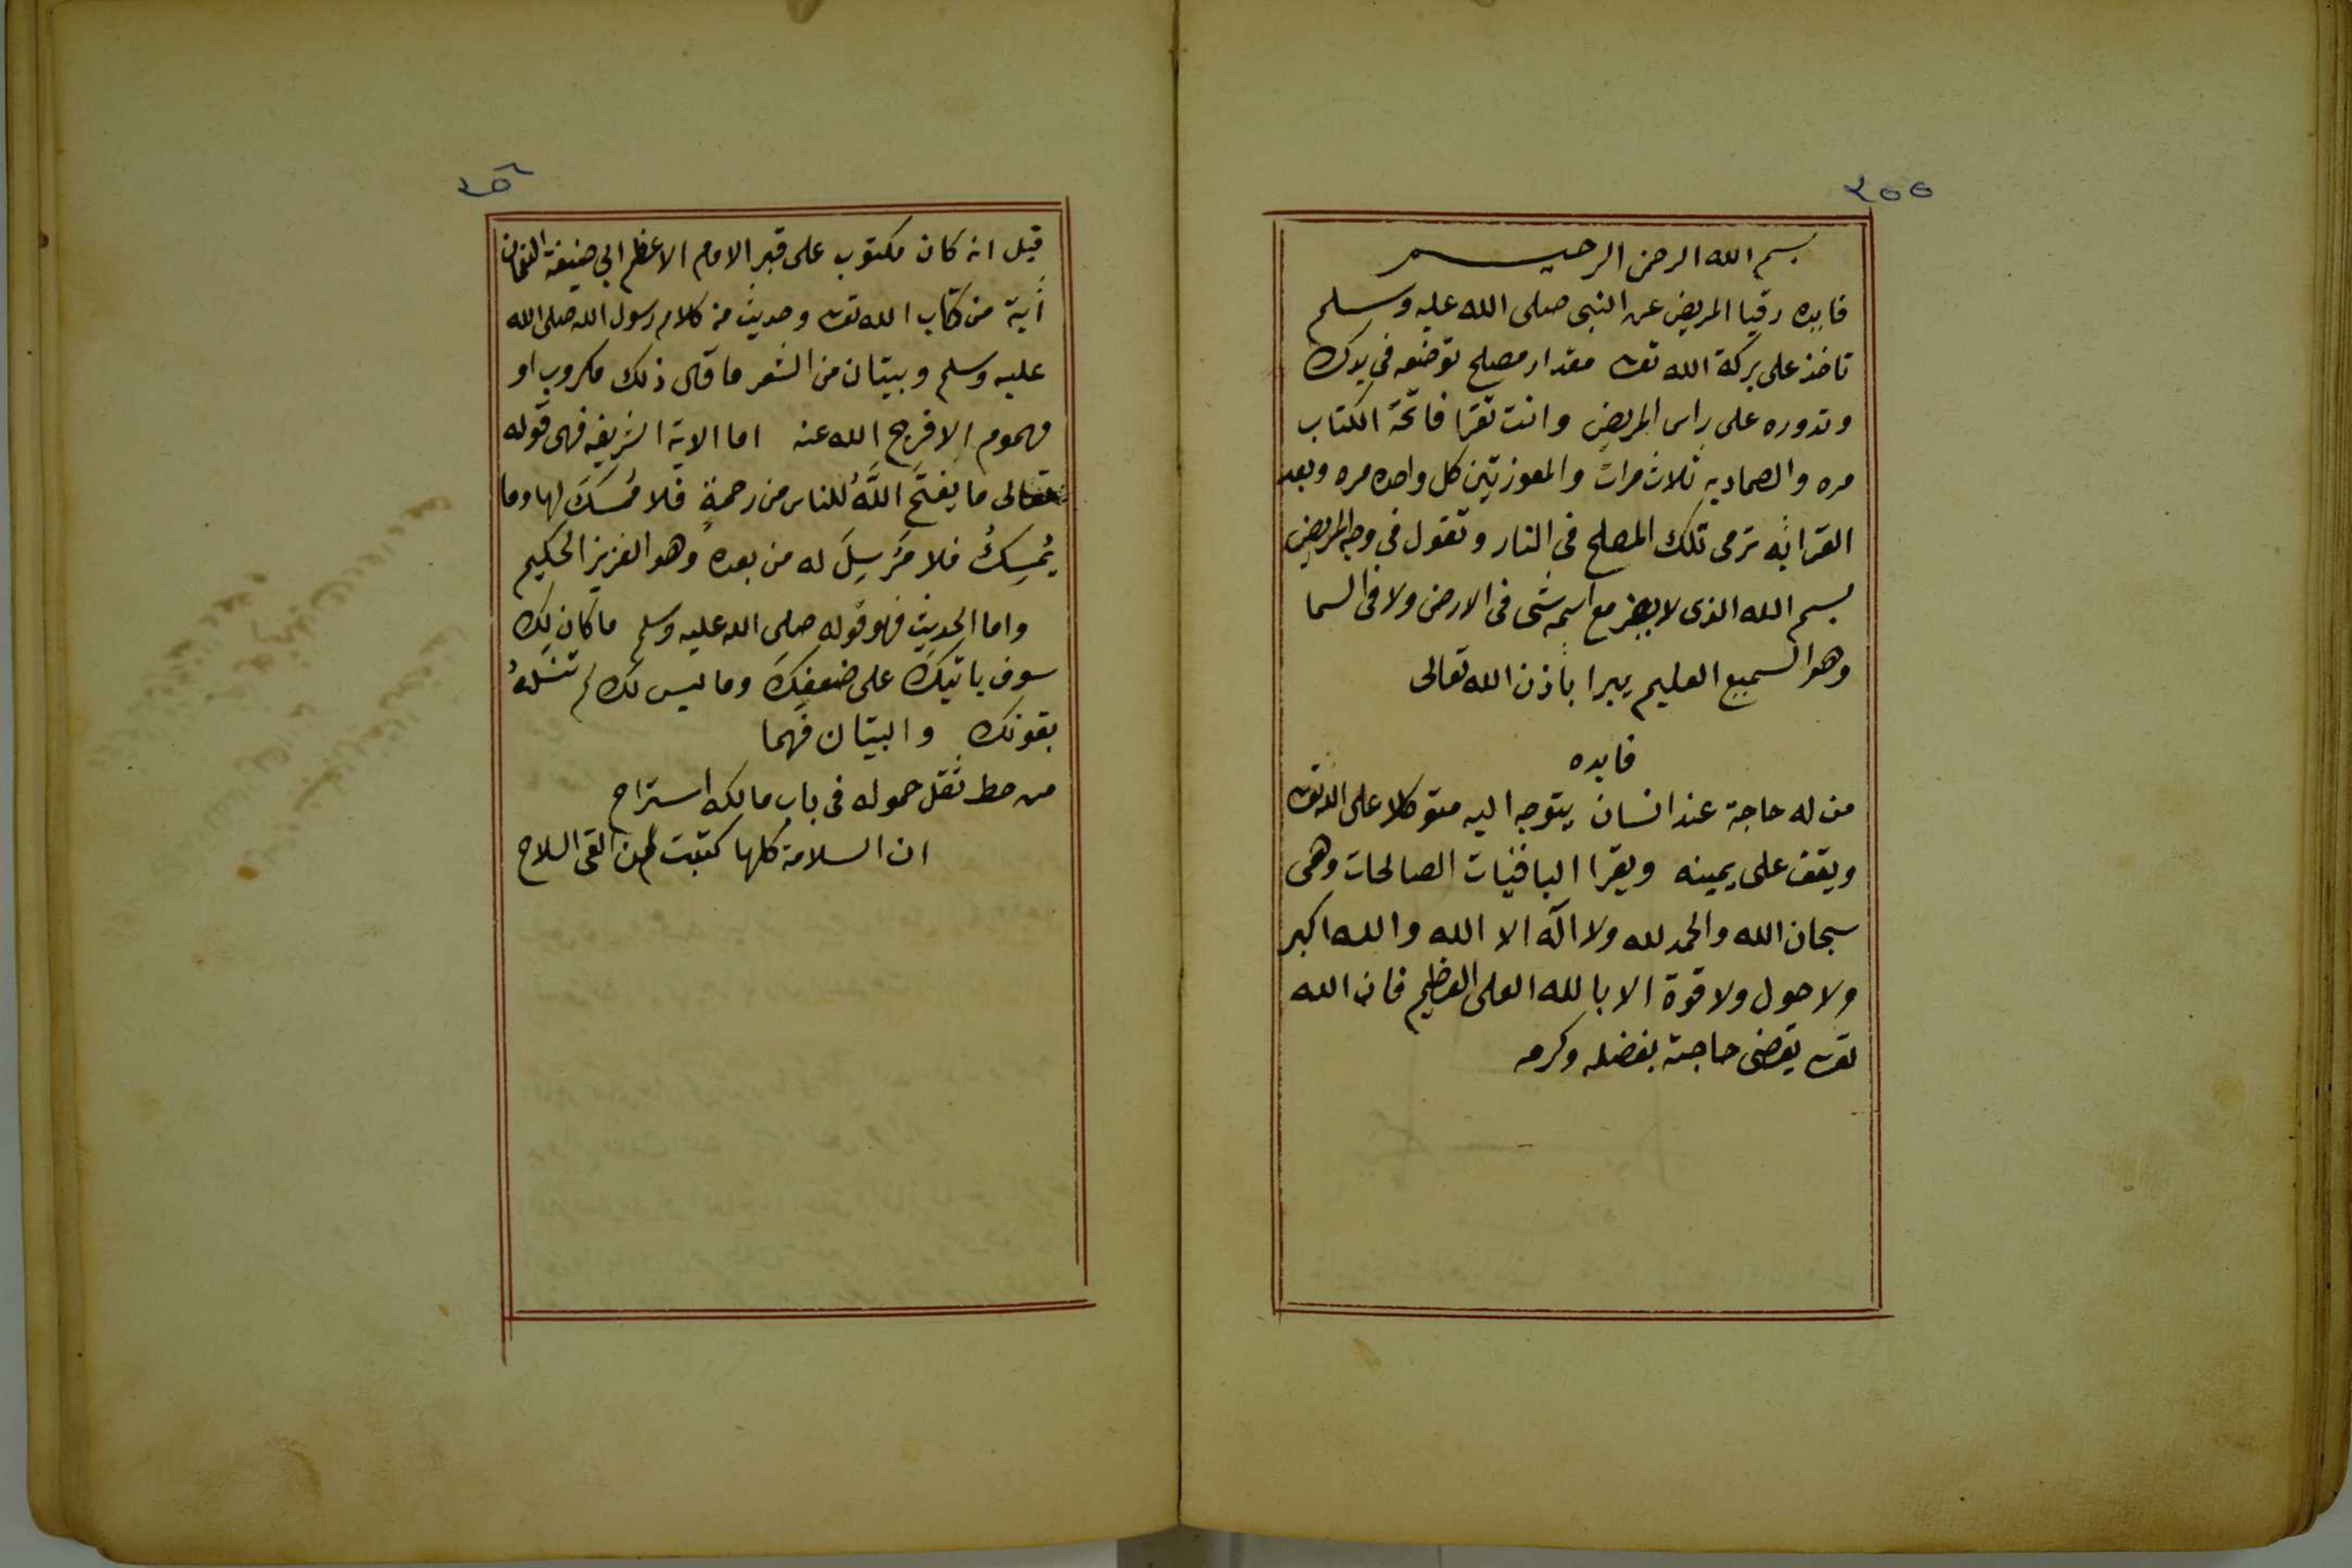 ٢٥٥
بسم الله الرحمن الرحيم
فايده رقيا المريض عن النبى صلى الله عليه وسلم
تاخذ على بركة الله تعه مقدار مصلح توضعه فى يدك
وتدوره على راس المريض وانت تقرا فاتحة الكتاب
مره والصماديه ثلاث مرات والمعوزتين كل واحده مره وبعد
القرائه ترمى تلك المصلح فى النار وتقول فى وجه المريض
بسم الله الذى لا يضر مع اسمه شى فى الارض ولا فى السما
وهو السميع العليم يبرا باذن الله تعالى
فايده
من له حاجة عند انسان يتوجه اليه متوكلا على الله تعه
ويقف على يمينه ويقرا الباقيات الصالحات وهى
سبحان الله والحمد لله ولا اله الا الله والله اكبر
ولا حول ولا قوة الا بالله العلى العظيم فان الله
تعه يقضى حاجته بفضله وكرمه
قيل انه كان مكتوب على قبر الامام الاعظم ابى حنيفة النعمان
أية من كتاب الله تعه وحديث من كلام رسول الله صلى الله
عليه وسلم وبيتان من الشعر ما قال ذلك مكروب او
مهموم الا فرج الله عنه اما الاية الشريفه فهى قوله
تعالى ما يفتَحِ اللَّهُ للناس من رحمةٍ فلا مُمْسِكَ لها وما
يُمْسِكُ فلا مُرسِلَ له من بعده وهو العزيز الحكيم
واما الحديث فهو قوله صلى الله عليه وسلم ما كان لك
سوف ياتيك على ضعفك وما ليس لك لم تنلهُ
بقوتك والبيتان فهما
من حط ثقل حموله فى باب مالكه استراح
ان السلامة كلها كتبت لمن القى السلاح